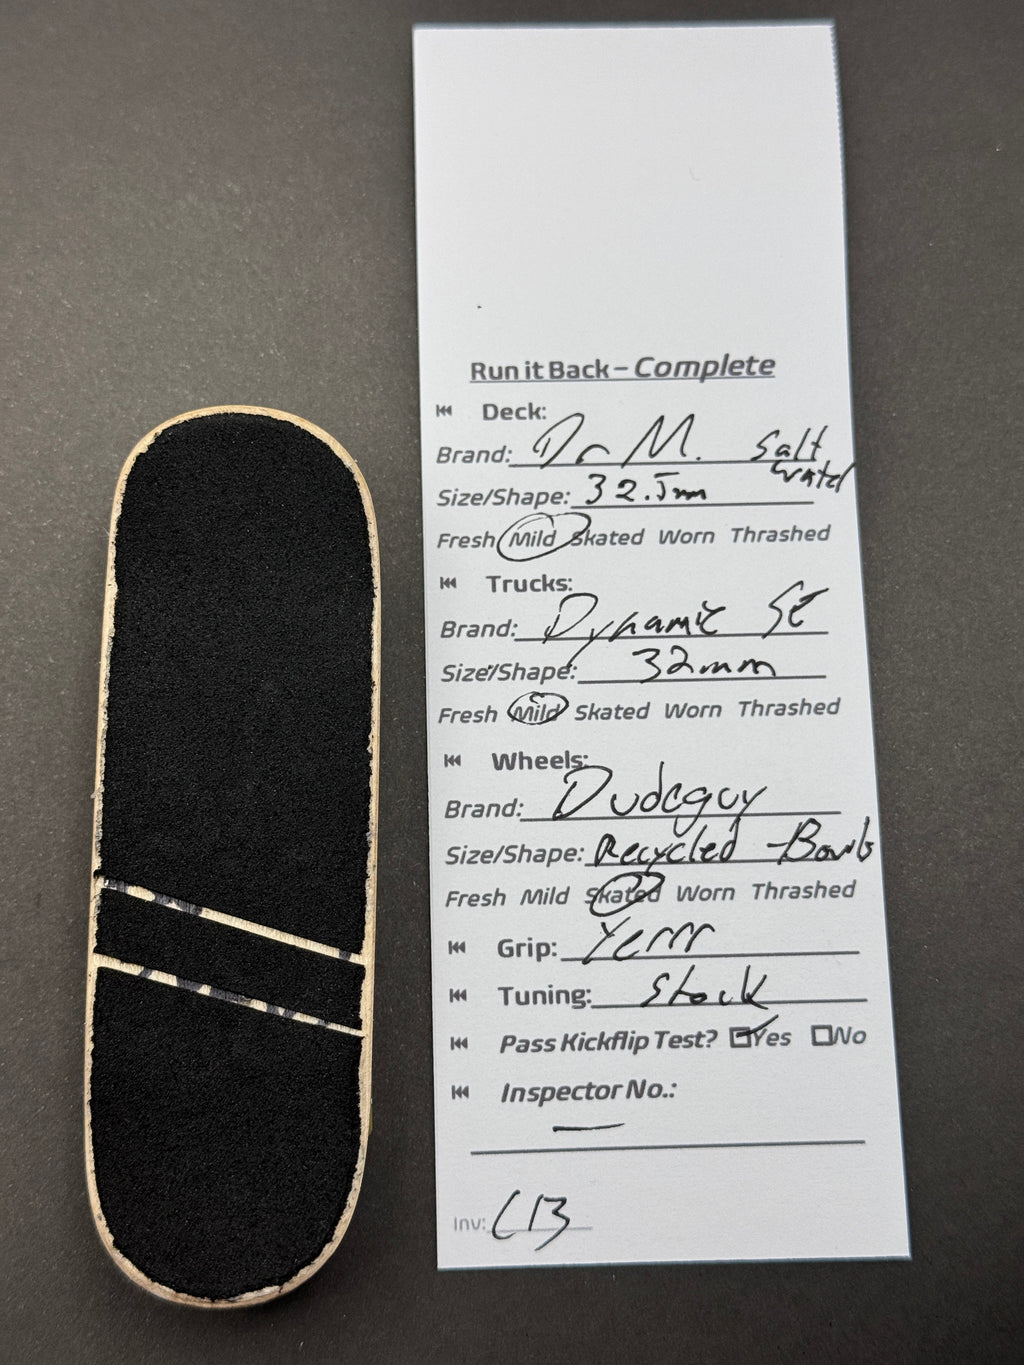 Run it Back – Complete
Deck:
Brand: Dr M. Salt Water
Size/Shape: 32.5mm
Fresh Mild Skated Worn Thrashed
Trucks:
Brand: Dynamic SE
Size/Shape: 32mm
Fresh Mild Skated Worn Thrashed
Wheels:
Brand: Dudeguy
Size/Shape: Recycled - Bowls
Fresh Mild Skated Worn Thrashed
Grip: Yerrr
Tuning: Stock
Pass Kickflip Test? Yes No
Inspector No.:
—
Inv: C13